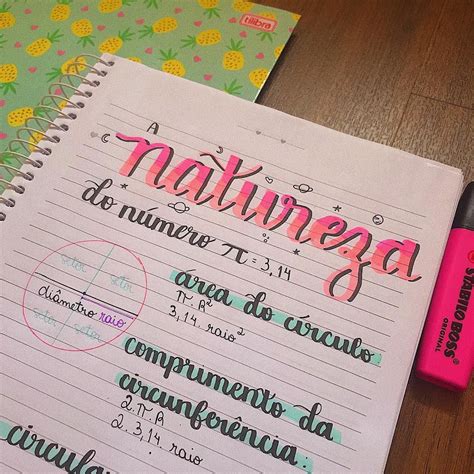 tilibra
A natureza
do número π = 3,14
setor setor
diâmetro raio
setor setor
área do círculo
π.R²
3,14.raio²
comprimento da
circunferência.
2.π.R
2.3,14.raio
circular
STABILO BOSS
ORIGINAL